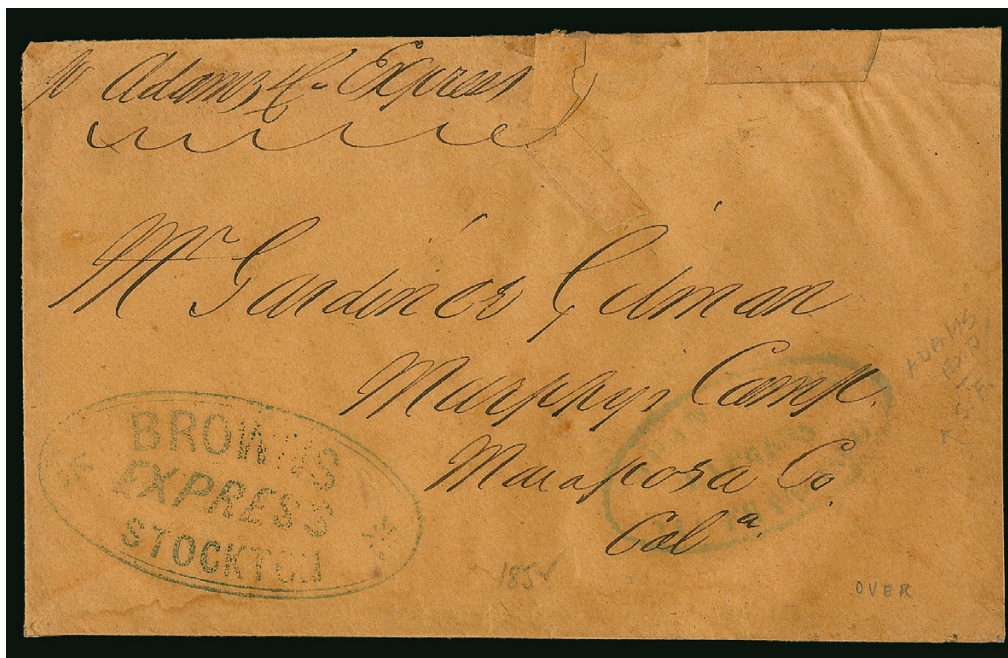 pr Adams & Co Express
Mr Gardiner Gilman
Murphys Camp.
Mariposa Co
Cala
BROWN'S
EXPRESS
STOCKTON
OVER